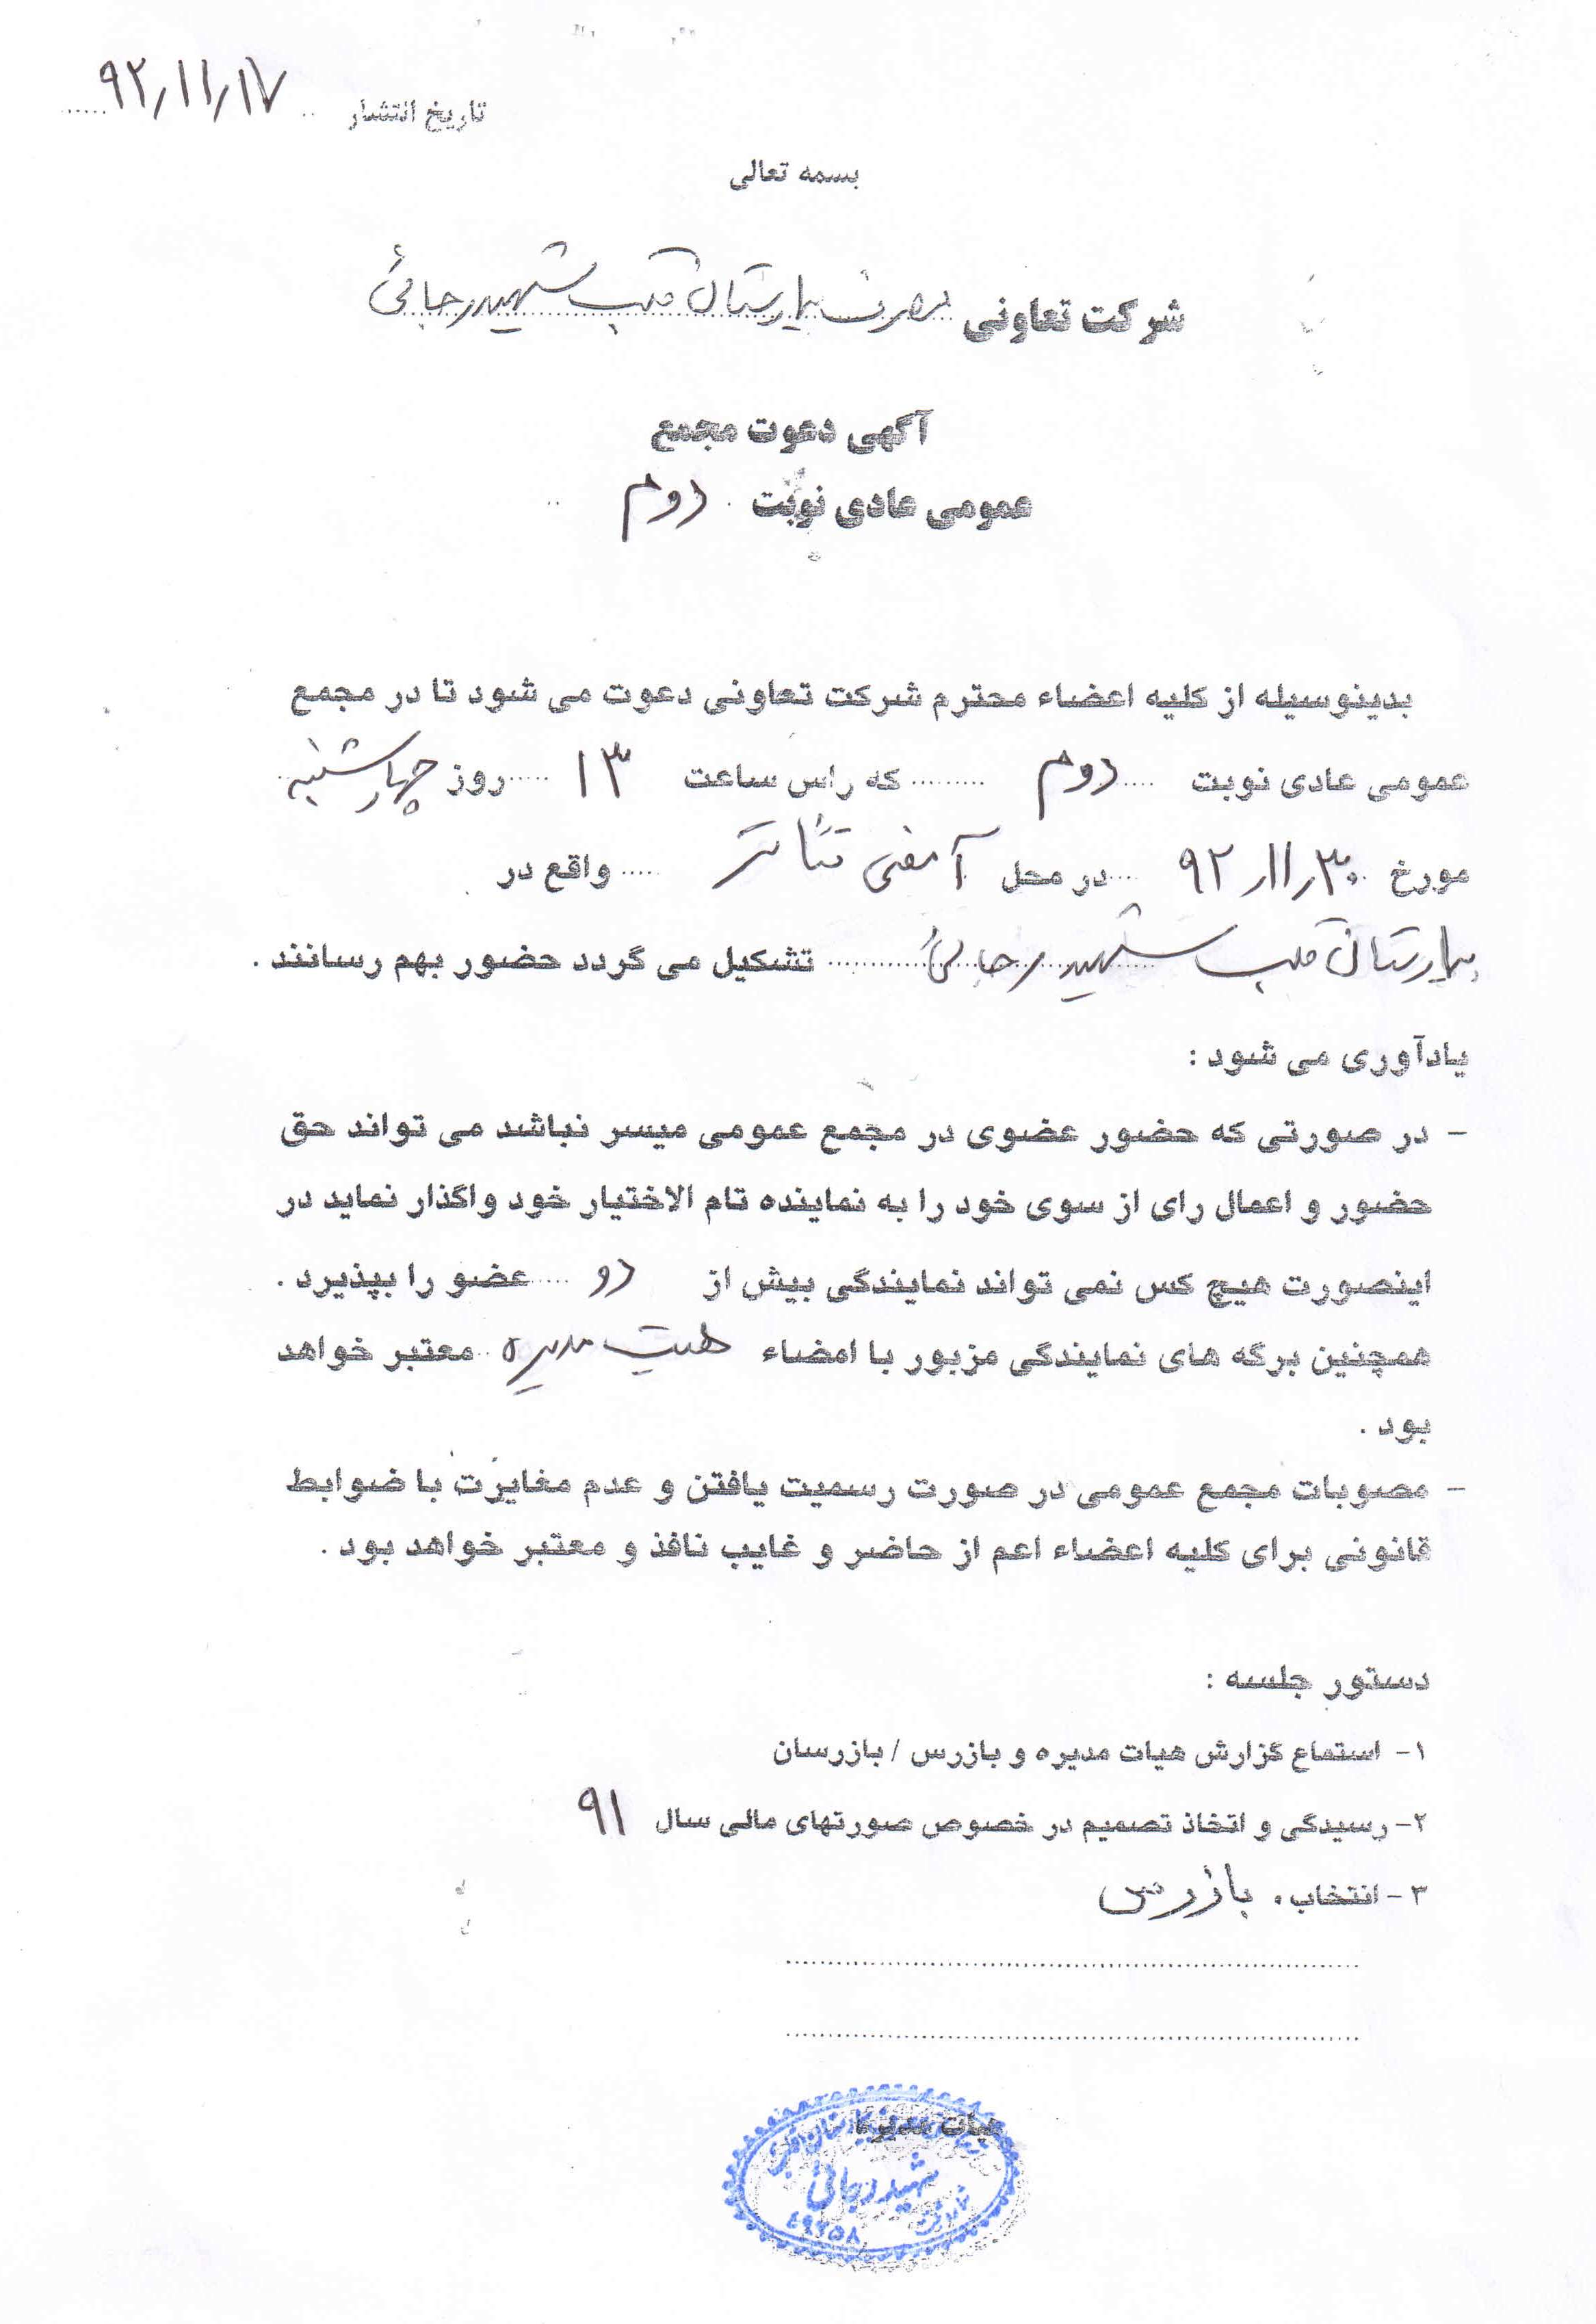 تاریخ انتشار ۹۲/۱۱/۱۷
بسمه تعالی
شرکت تعاونی مصرف بیمارستان قلب شهید رجائی
آگهی دعوت مجمع
عمومی عادی نوبت دوم
بدینوسیله از کلیه اعضاء محترم شرکت تعاونی دعوت می شود تا در مجمع
عمومی عادی نوبت دوم که راس ساعت ۱۳ روز چهارشنبه
مورخ ۹۲/۱۱/۳۰ در محل آمفی تئاتر واقع در
بیمارستان قلب شهید رجائی تشکیل می گردد حضور بهم رسانند .
یادآوری می شود :
- در صورتی که حضور عضوی در مجمع عمومی میسر نباشد می تواند حق
حضور و اعمال رای از سوی خود را به نماینده تام الاختیار خود واگذار نماید در
اینصورت هیچ کس نمی تواند نمایندگی بیش از دو عضو را بپذیرد .
همچنین برگه های نمایندگی مزبور با امضاء هیت مدیره معتبر خواهد
بود .
- مصوبات مجمع عمومی در صورت رسمیت یافتن و عدم مغایرت با ضوابط
قانونی برای کلیه اعضاء اعم از حاضر و غایب نافذ و معتبر خواهد بود .
دستور جلسه :
۱- استماع گزارش هیات مدیره و بازرس / بازرسان
۲- رسیدگی و اتخاذ تصمیم در خصوص صورتهای مالی سال ۹۱
۳- انتخاب بازرس
هیات مدیره
شهید رجائی